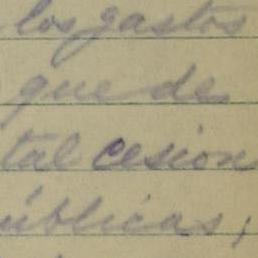 los gastos
que de
tal cesion
úblicas,